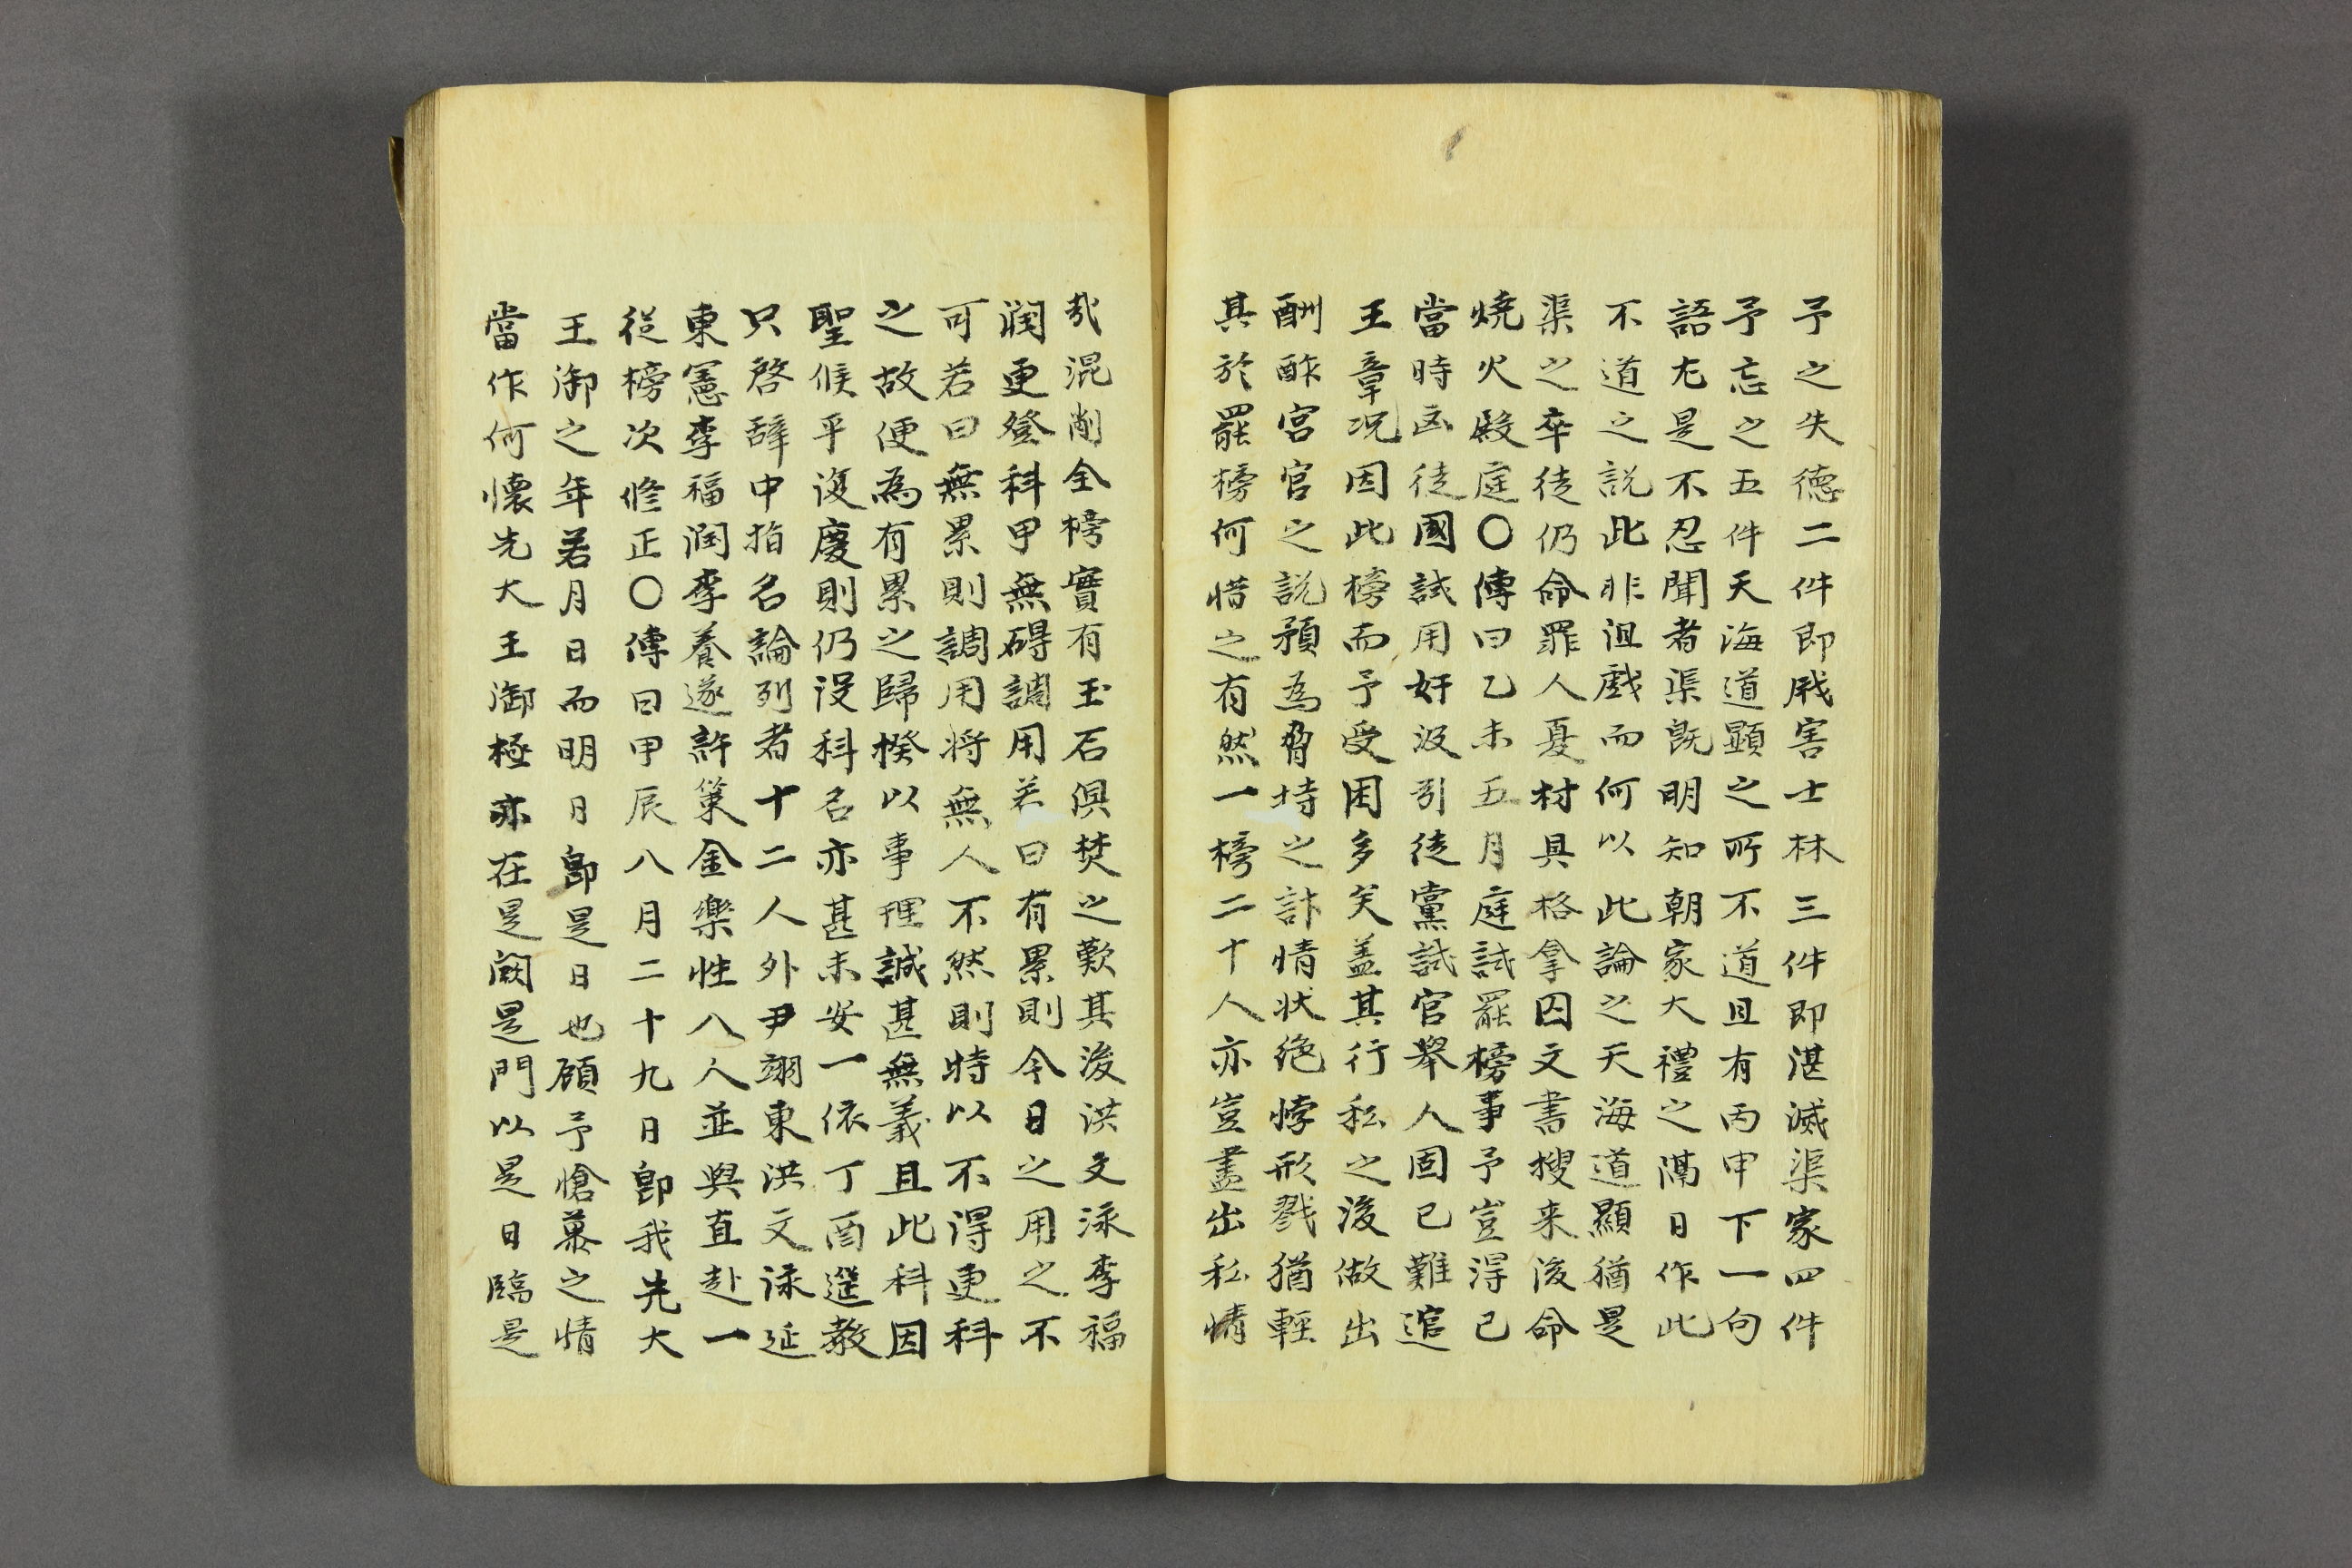 予之失德二件即戕害士林三件即湛滅渠家四件
予忘之五件天海道顯之所不道且有丙申下一句
語尤是不忍聞者渠既明知朝家大禮之隔日作此
不道之說此非沮戲而何以此論之天海道顯猶是
渠之卒徒仍命罪人憂材具格拿囚文書搜来後命
燒火殿庭○傳曰乙未五月庭試罷榜事予豈淂已
當時凶徒國試用奸汲引徒黨試官舉人固已難逭
王章况因此榜而予受困多矣盖其行私之後做出
酬酢宮官之說預為脅持之計情狀绝悖形戮猶輕
其於罷榜何惜之有然一榜二十人亦豈盡出私情
哉混削全榜實有玉石俱焚之歎其後洪文泳李福
潤更登科甲無碍調用若曰有累則今日之用之不
可若曰無累則調用将無人不然則時以不淂更科
之故便為有累之歸揆以事理誠甚無義且此科因
聖候平復慶則仍设科名亦甚未安一依丁酉筵教
只啓辭中指名論列者十二人外尹翊東洪文泳延
東憲李福潤李養遂許䈇金樂性八人並與直赴一
從榜次修正○傳曰甲辰八月二十九日即我先大
王御之年若月日而明日即是日也顧予愴慕之情
當作何懷先大王御極亦在是闕是門以是日臨是